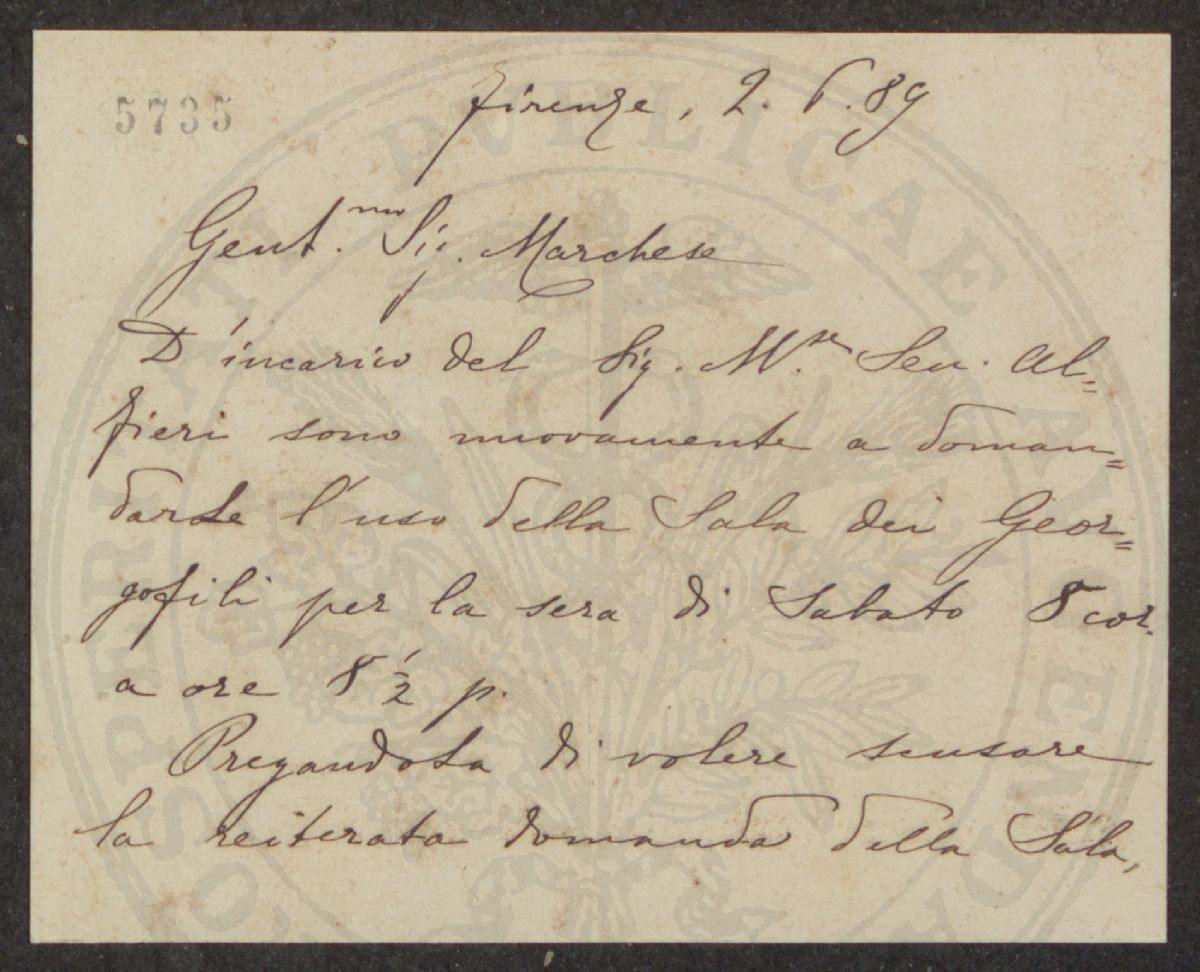 5735
Firenze, 2. 6. 89
Gent.mo Sig. Marchese
D'incarico del Sig. M.se Sen. Al=
fieri sono nuovamente a doman=
darLe l'uso della Sala dei Geor=
gofili per la sera di Sabato 8 cor.
a ore 8 1/2 p.
PregandoLa di volere scusare
la reiterata domanda della Sala,
PROSPERITATI PVBLICAE AVGENDAE